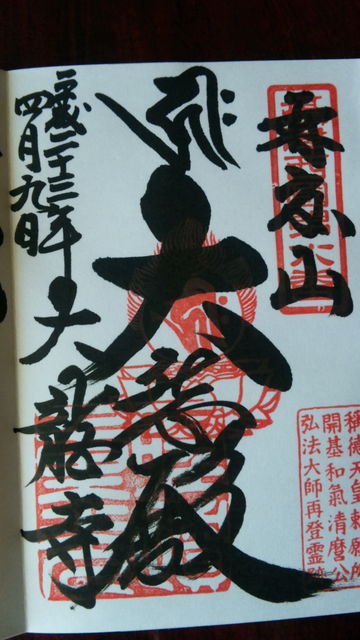 再度山
大悲殿
平成二十三年
四月九日
大龍寺
稱徳天皇勅願所
開基和氣清麿公
弘法大師再登霊跡